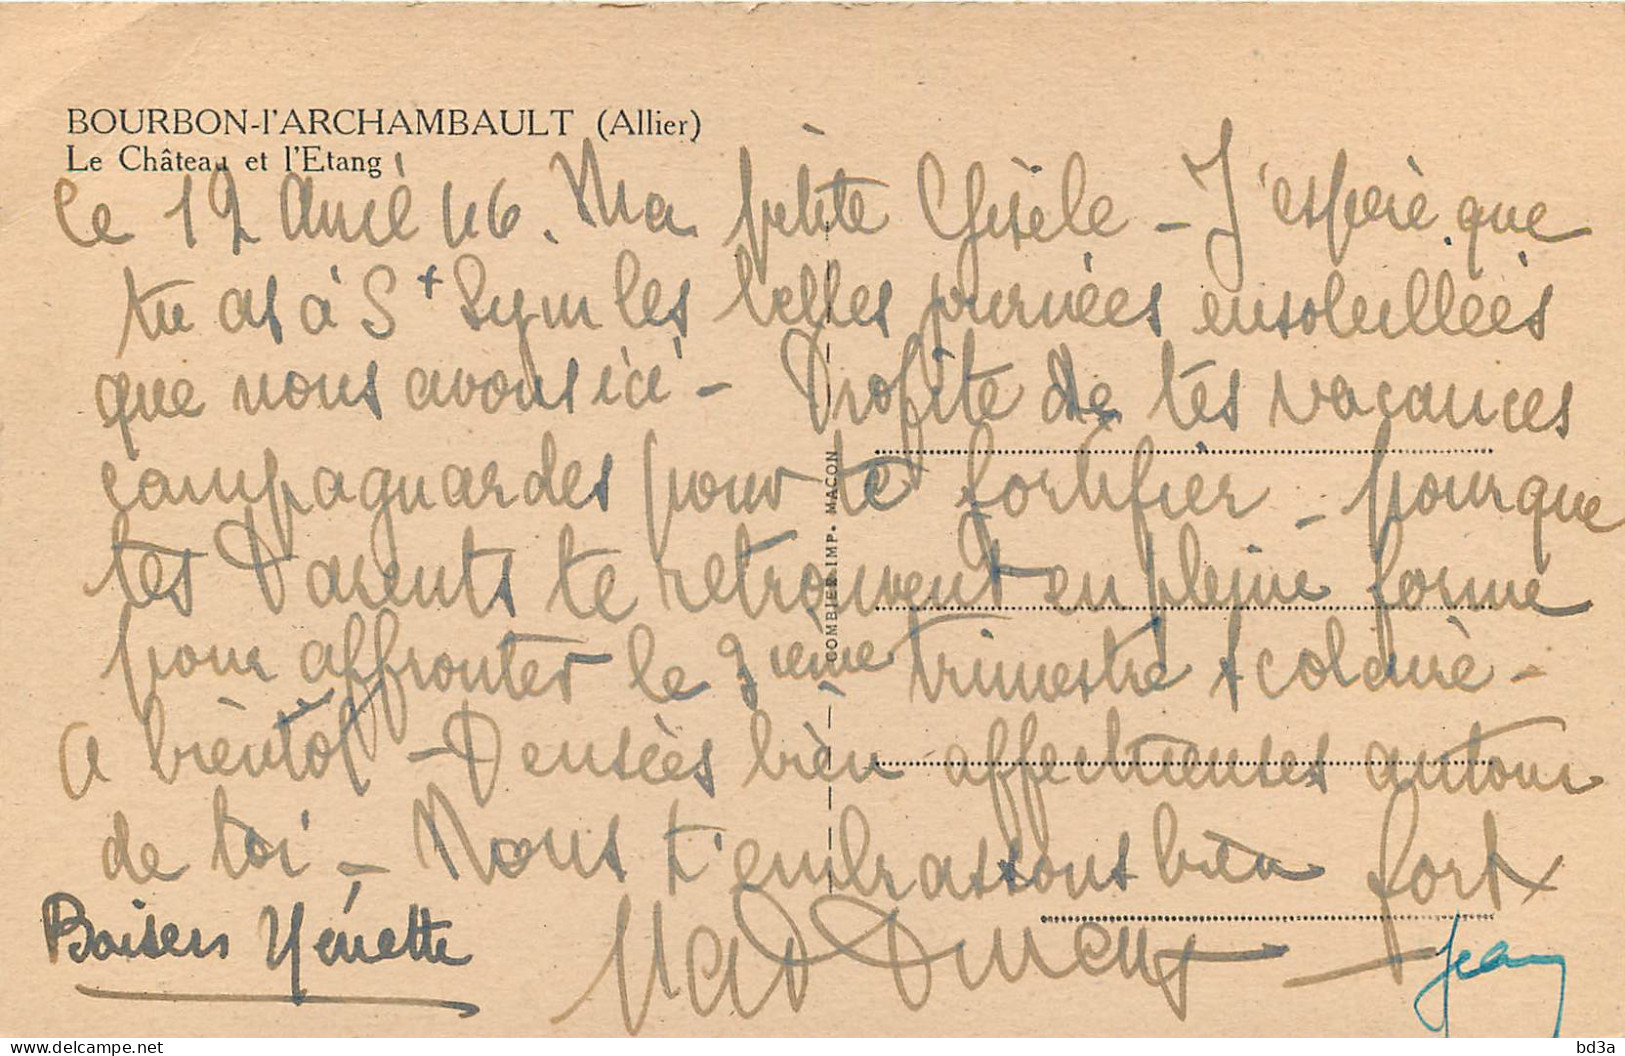 BOURBON-l'ARCHAMBAULT (Allier)
Le Château et l'Etang
Le 12 Avril 46. Ma petite Gisèle - J'espère que
tu as à St Sym les belles journées ensoleillées
que nous avons ici - Profite de tes vacances
campagnardes pour te fortifier - pour que
tes Parents te retrouvent en pleine forme
pour affronter le 3ième trimestre scolaire -
A bientôt - Pensées bien affectueuses autour
de toi - Nous t'embrassons bien fort
Baisers Ménette
Jean
COMBIER IMP. MACON
delcampe.net
bd3a